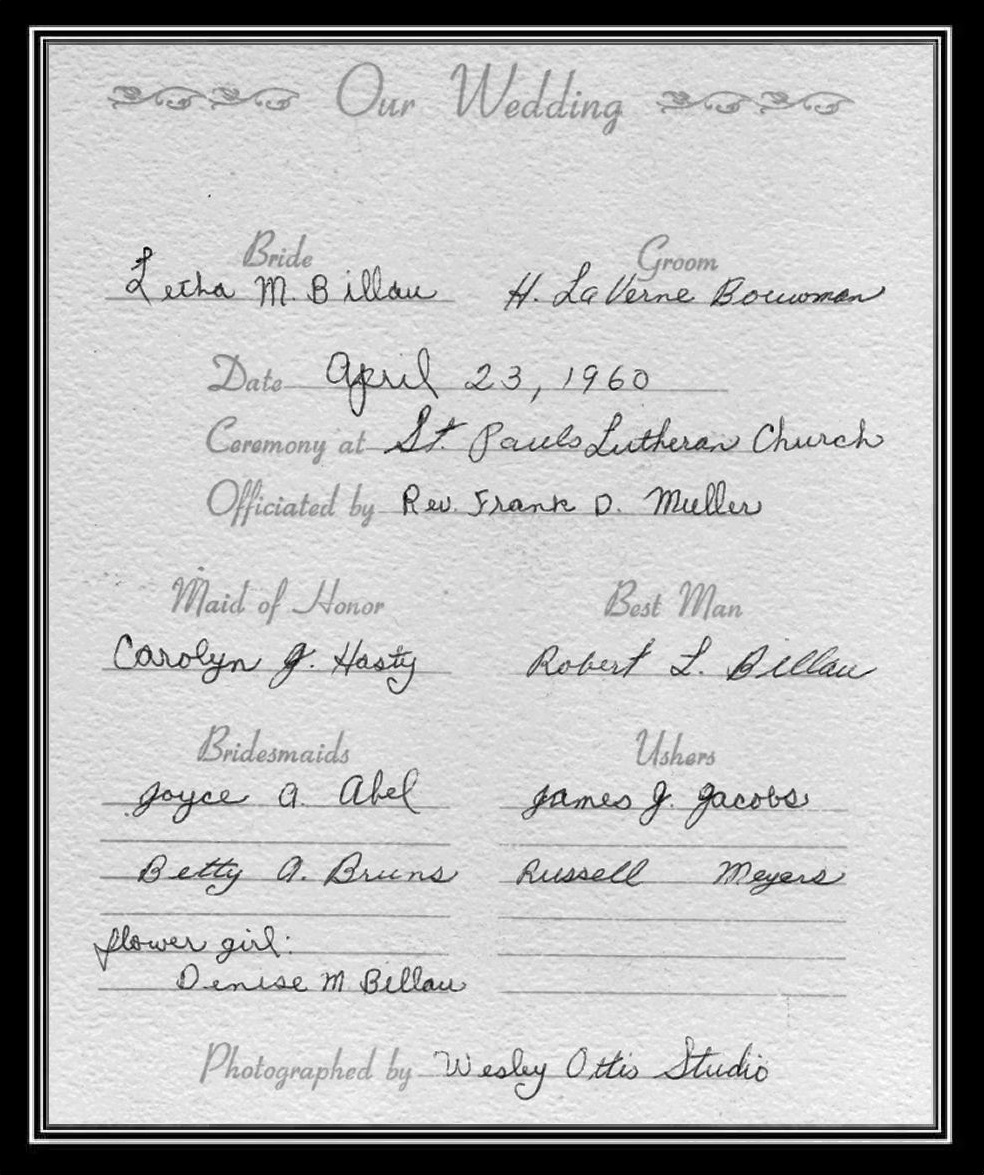 Our Wedding
Bride Groom
Letha M. Billau H. LaVerne Bouwman
Date April 23, 1960
Ceremony at St. Pauls Lutheran Church
Officiated by Rev. Frank D. Mueller
Maid of Honor Best Man
Carolyn J. Hasty Robert L. Billau
Bridesmaids Ushers
Joyce A. Abel James J. Jacobs
Betty A. Bruns Russell Meyers
flower girl:
Denise M Billau
Photographed by Wesley Ottis Studio